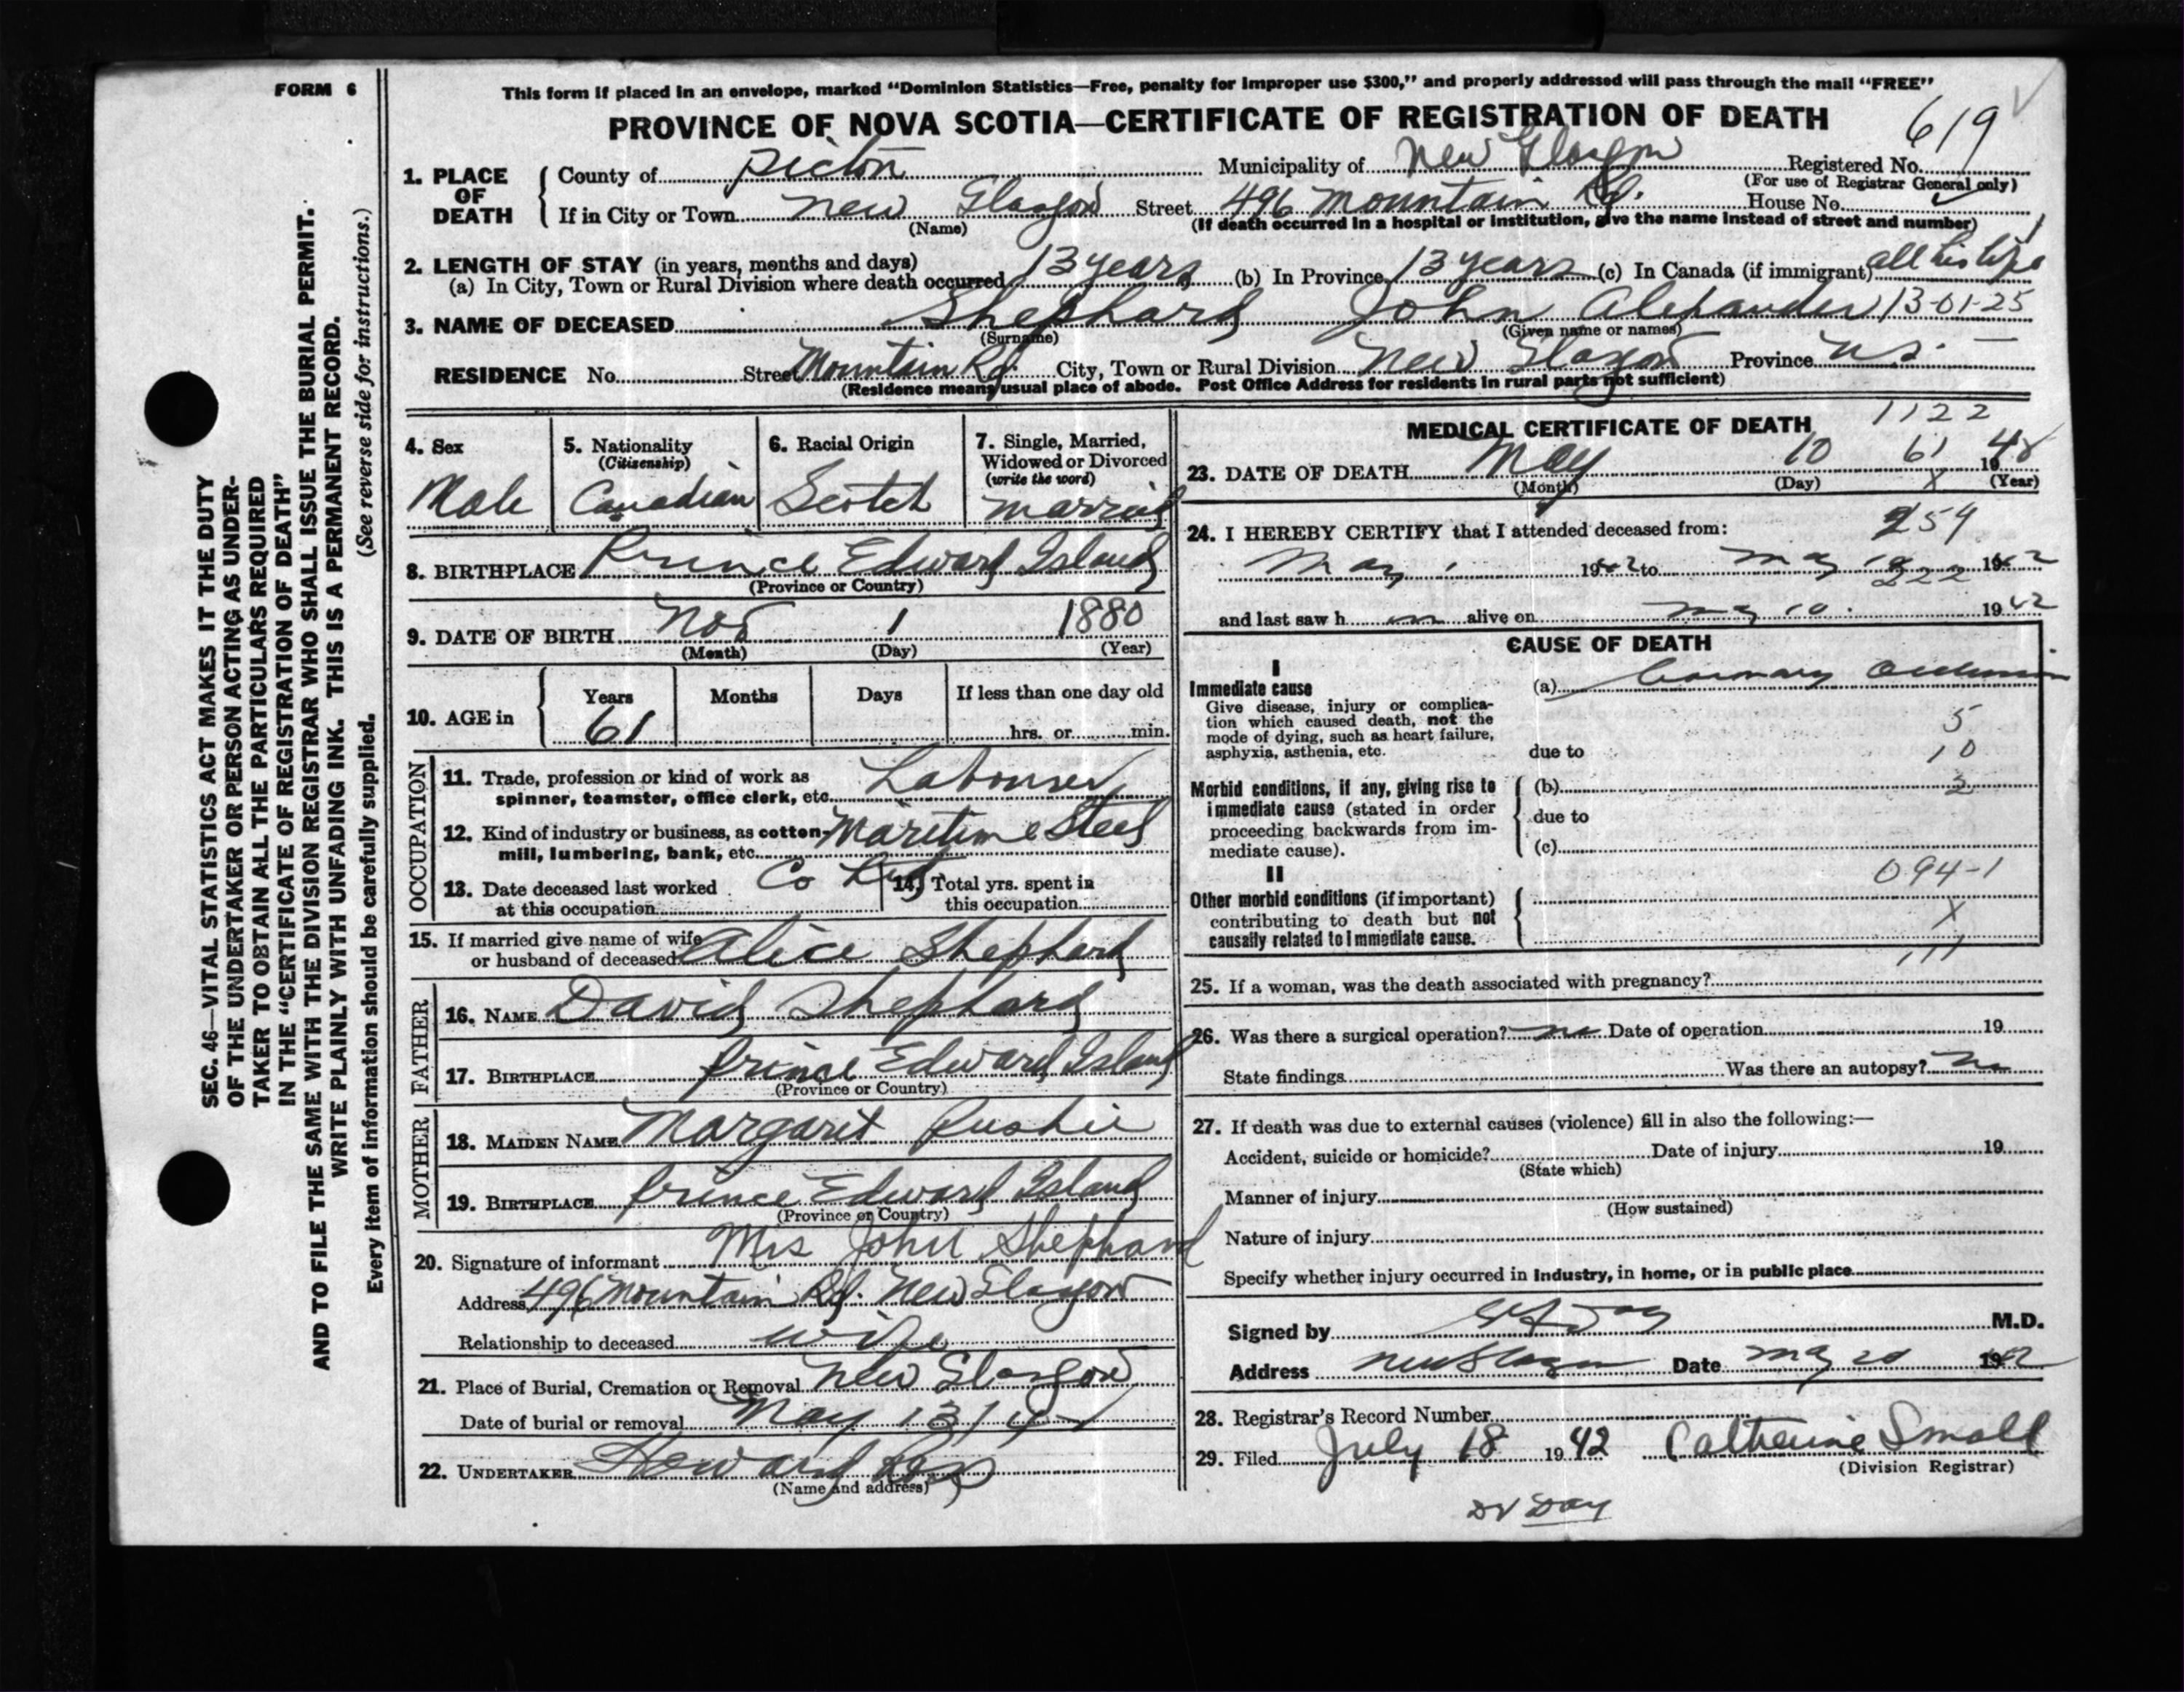 FORM 6
This form if placed in an envelope, marked "Dominion Statistics—Free, penalty for improper use $300," and properly addressed will pass through the mail "FREE"
PROVINCE OF NOVA SCOTIA—CERTIFICATE OF REGISTRATION OF DEATH
619
SEC. 46—VITAL STATISTICS ACT MAKES IT THE DUTY
OF THE UNDERTAKER OR PERSON ACTING AS UNDER-
TAKER TO OBTAIN ALL THE PARTICULARS REQUIRED
IN THE "CERTIFICATE OF REGISTRATION OF DEATH"
AND TO FILE THE SAME WITH THE DIVISION REGISTRAR WHO SHALL ISSUE THE BURIAL PERMIT.
WRITE PLAINLY WITH UNFADING INK. THIS IS A PERMANENT RECORD.
Every item of information should be carefully supplied. (See reverse side for instructions.)
1. PLACE OF DEATH
County of Pictou Municipality of New Glasgow Registered No.
(For use of Registrar General only)
If in City or Town New Glasgow Street 496 Mountain Rd. House No.
(Name) (If death occurred in a hospital or institution, give the name instead of street and number)
2. LENGTH OF STAY (in years, months and days)
(a) In City, Town or Rural Division where death occurred 13 years (b) In Province 13 years (c) In Canada (if immigrant) all his life
3. NAME OF DECEASED Shephard John Alexander 13-01-25
(Surname) (Given name or names)
RESIDENCE No. Street Mountain Rd. City, Town or Rural Division New Glasgow Province N.S.
(Residence means usual place of abode. Post Office Address for residents in rural parts not sufficient)
4. Sex
Male
5. Nationality
(Citizenship)
Canadian
6. Racial Origin
Scotch
7. Single, Married,
Widowed or Divorced
(write the word)
Married
8. BIRTHPLACE Prince Edward Island
(Province or Country)
9. DATE OF BIRTH Nov 1 1880
(Month) (Day) (Year)
10. AGE in
Years Months Days If less than one day old
61 hrs. or min.
OCCUPATION
11. Trade, profession or kind of work as
spinner, teamster, office clerk, etc. Labourer
12. Kind of industry or business, as cotton-
mill, lumbering, bank, etc. Maritime Steel
Co Ltd
13. Date deceased last worked
at this occupation
14. Total yrs. spent in
this occupation
15. If married give name of wife
or husband of deceased Alice Shephard
FATHER
16. NAME David Shephard
17. BIRTHPLACE Prince Edward Island
(Province or Country)
MOTHER
18. MAIDEN NAME Margaret
19. BIRTHPLACE Prince Edward Island
(Province or Country)
20. Signature of informant Mrs John Shephard
Address 496 Mountain Rd. New Glasgow
Relationship to deceased wife
21. Place of Burial, Cremation or Removal New Glasgow
Date of burial or removal May 13
22. UNDERTAKER Howard Ross
(Name and address)
MEDICAL CERTIFICATE OF DEATH
1122
23. DATE OF DEATH May 10 61 19
(Month) (Day) X (Year)
24. I HEREBY CERTIFY that I attended deceased from:
259
May 1942 to May 222 1942
and last saw h im alive on May 10. 1942
CAUSE OF DEATH
I
Immediate cause
Give disease, injury or complica-
tion which caused death, not the
mode of dying, such as heart failure,
asphyxia, asthenia, etc.
(a) Coronary Occlusion
5
due to 10
Morbid conditions, if any, giving rise to
immediate cause (stated in order
proceeding backwards from im-
mediate cause).
(b)
due to
(c)
094-1
II
Other morbid conditions (if important)
contributing to death but not
causally related to immediate cause.
X
111
25. If a woman, was the death associated with pregnancy?
26. Was there a surgical operation? no Date of operation 19
State findings Was there an autopsy? no
27. If death was due to external causes (violence) fill in also the following:—
Accident, suicide or homicide? Date of injury 19
(State which)
Manner of injury
(How sustained)
Nature of injury
Specify whether injury occurred in industry, in home, or in public place
Signed by Day M.D.
Address New Glasgow Date May 20 1942
28. Registrar's Record Number
29. Filed July 18 1942 Catherine Small
(Division Registrar)
Dr Day